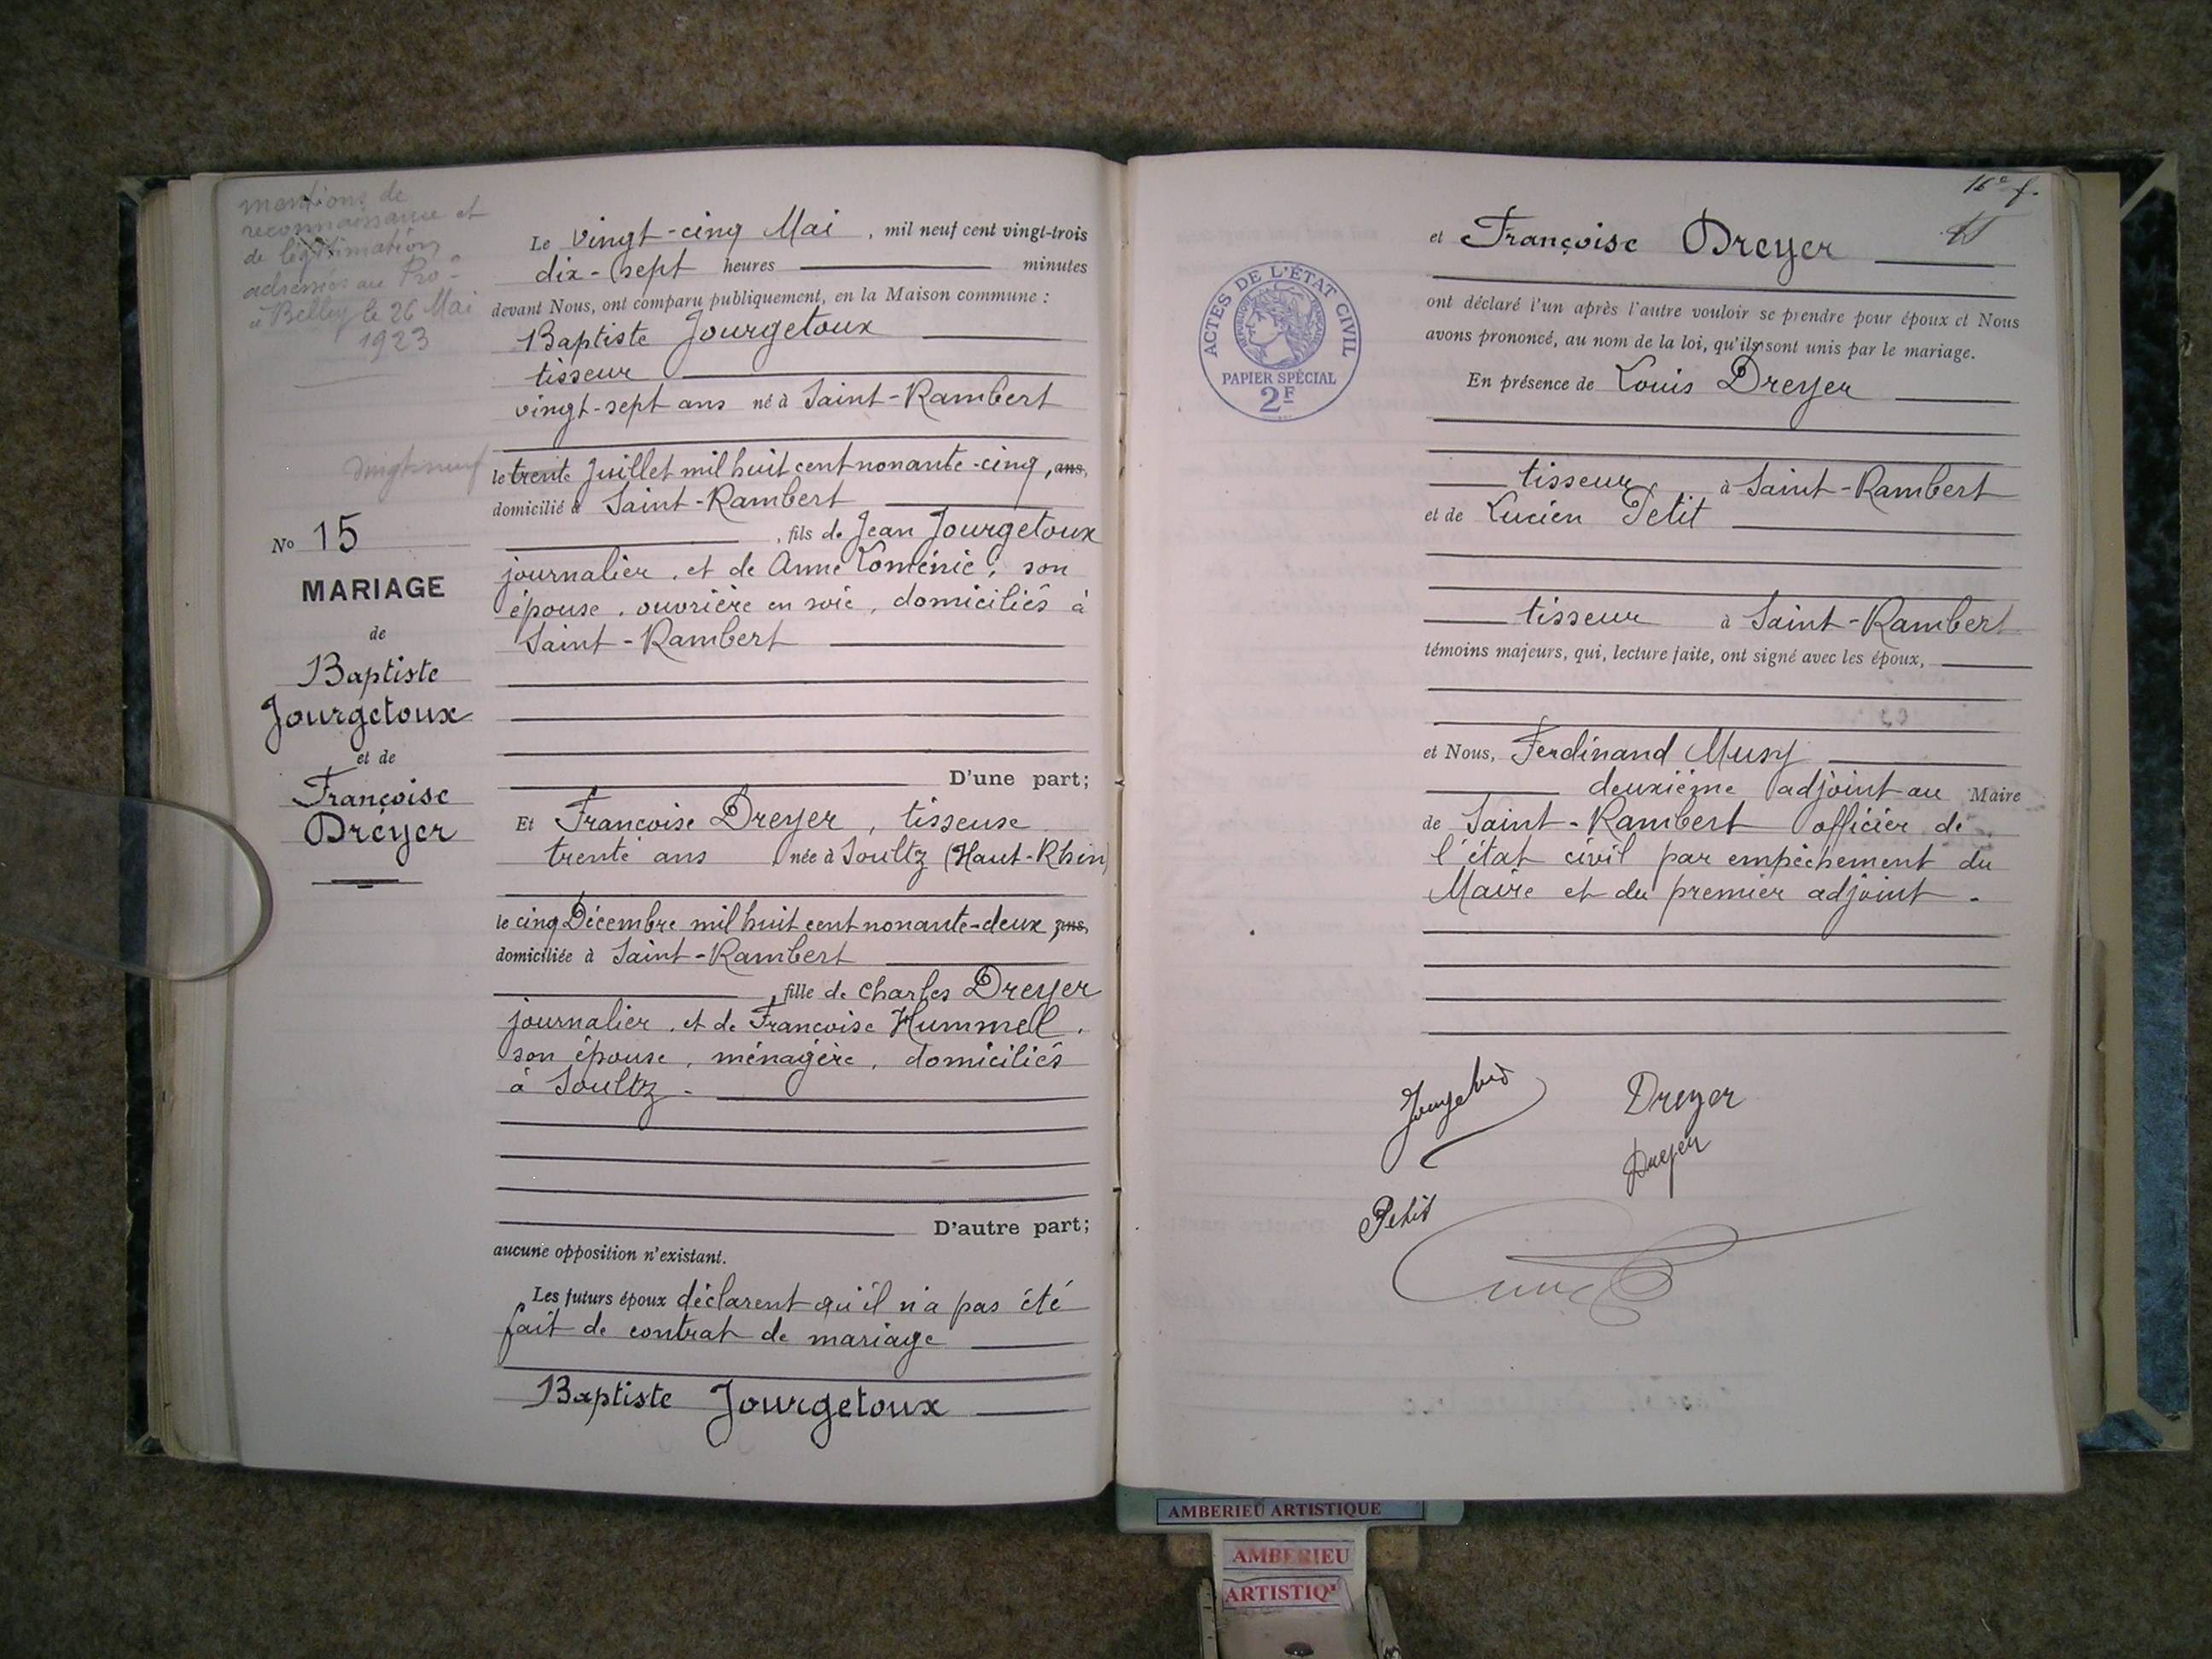 mentions de
reconnaissance et
de légitimation
adressées au Pro-
à Belley le 26 Mai
1923
vingt-neuf
No 15
MARIAGE
de
Baptiste
Jourgetoux
et de
Françoise
Dreyer
Le vingt-cinq Mai, mil neuf cent vingt-trois
dix-sept heures minutes
devant Nous, ont comparu publiquement, en la Maison commune :
Baptiste Jourgetoux
tisseur
vingt-sept ans né à Saint-Rambert
le trente Juillet mil huit cent nonante-cinq, ans,
domicilié à Saint-Rambert
, fils de Jean Jourgetoux
journalier, et de Anne Loménie, son
épouse, ouvrière en soie, domiciliés à
Saint-Rambert
D'une part;
Et Françoise Dreyer, tisseuse
trente ans née à Soultz (Haut-Rhin)
le cinq Décembre mil huit cent nonante-deux, ans,
domiciliée à Saint-Rambert
, fille de Charles Dreyer
journalier, et de Françoise Hummell,
son épouse, ménagère, domiciliés
à Soultz.
D'autre part;
aucune opposition n'existant.
Les futurs époux déclarent qu'il n'a pas été
fait de contrat de mariage
Baptiste Jourgetoux
16e f.
et Françoise Dreyer
ont déclaré l'un après l'autre vouloir se prendre pour époux et Nous
avons prononcé, au nom de la loi, qu'ils sont unis par le mariage.
ACTES DE L'ÉTAT CIVIL
RÉPUBLIQUE FRANÇAISE
PAPIER SPÉCIAL
2F
En présence de Louis Dreyer
tisseur à Saint-Rambert
et de Lucien Petit
tisseur à Saint-Rambert
témoins majeurs, qui, lecture faite, ont signé avec les époux,
et Nous, Ferdinand Musy
deuxième adjoint au Maire
de Saint-Rambert officier de
l'état civil par empêchement du
Maire et du premier adjoint.
Dreyer
Dreyer
Petit
AMBERIEU ARTISTIQUE
AMBERIEU
ARTISTIQ